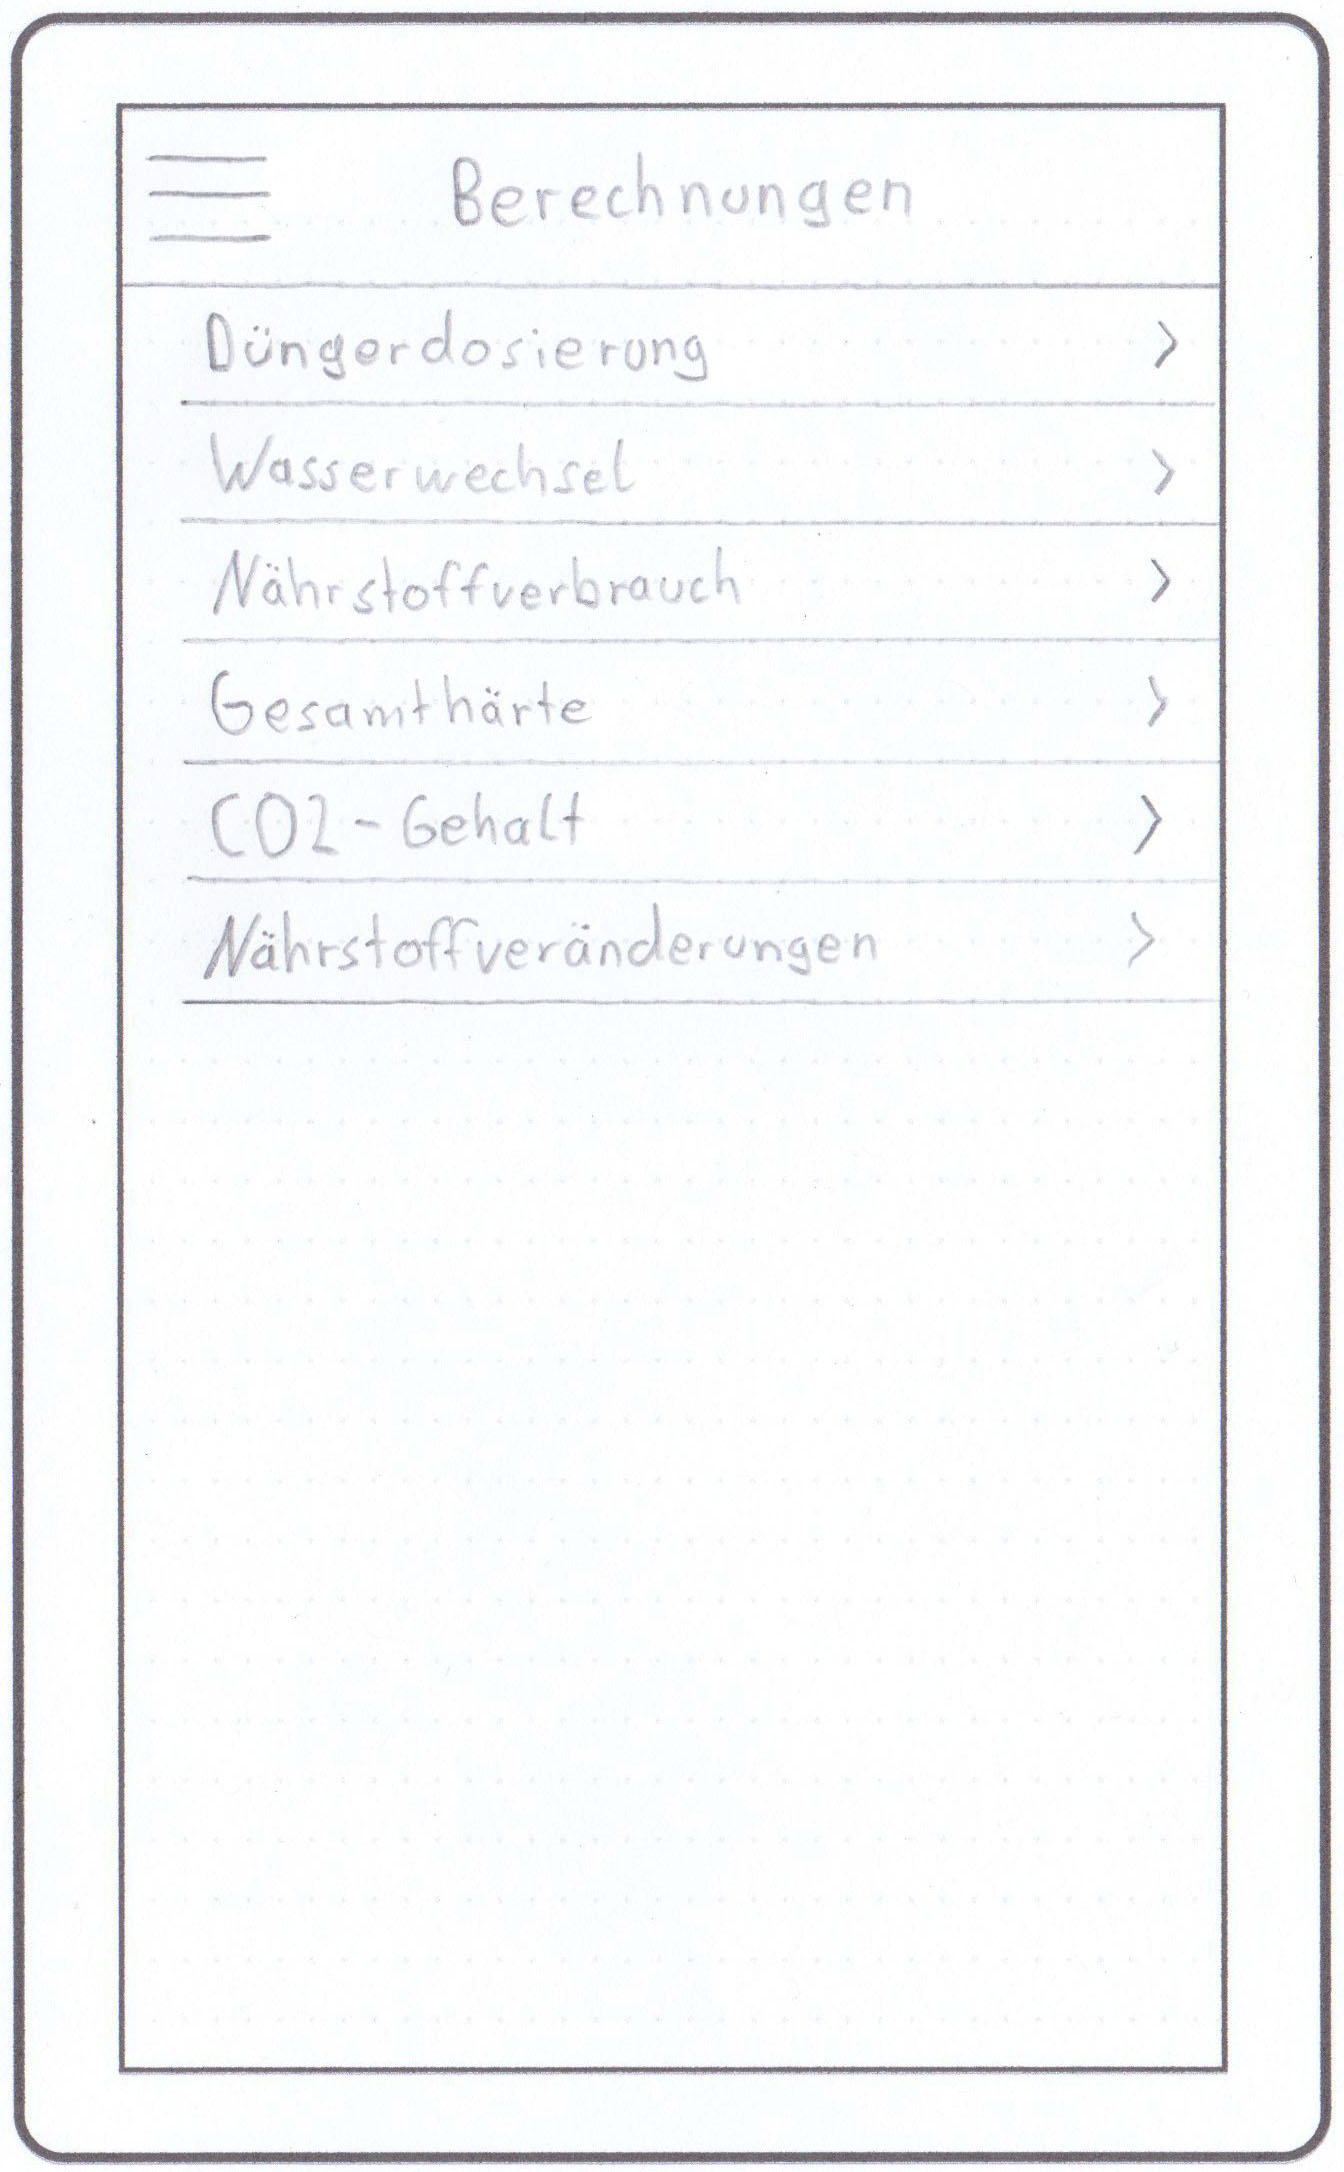 Berechnungen
Düngerdosierung
Wasserwechsel
Nährstoffverbrauch
Gesamthärte
CO2-Gehalt
Nährstoffveränderungen